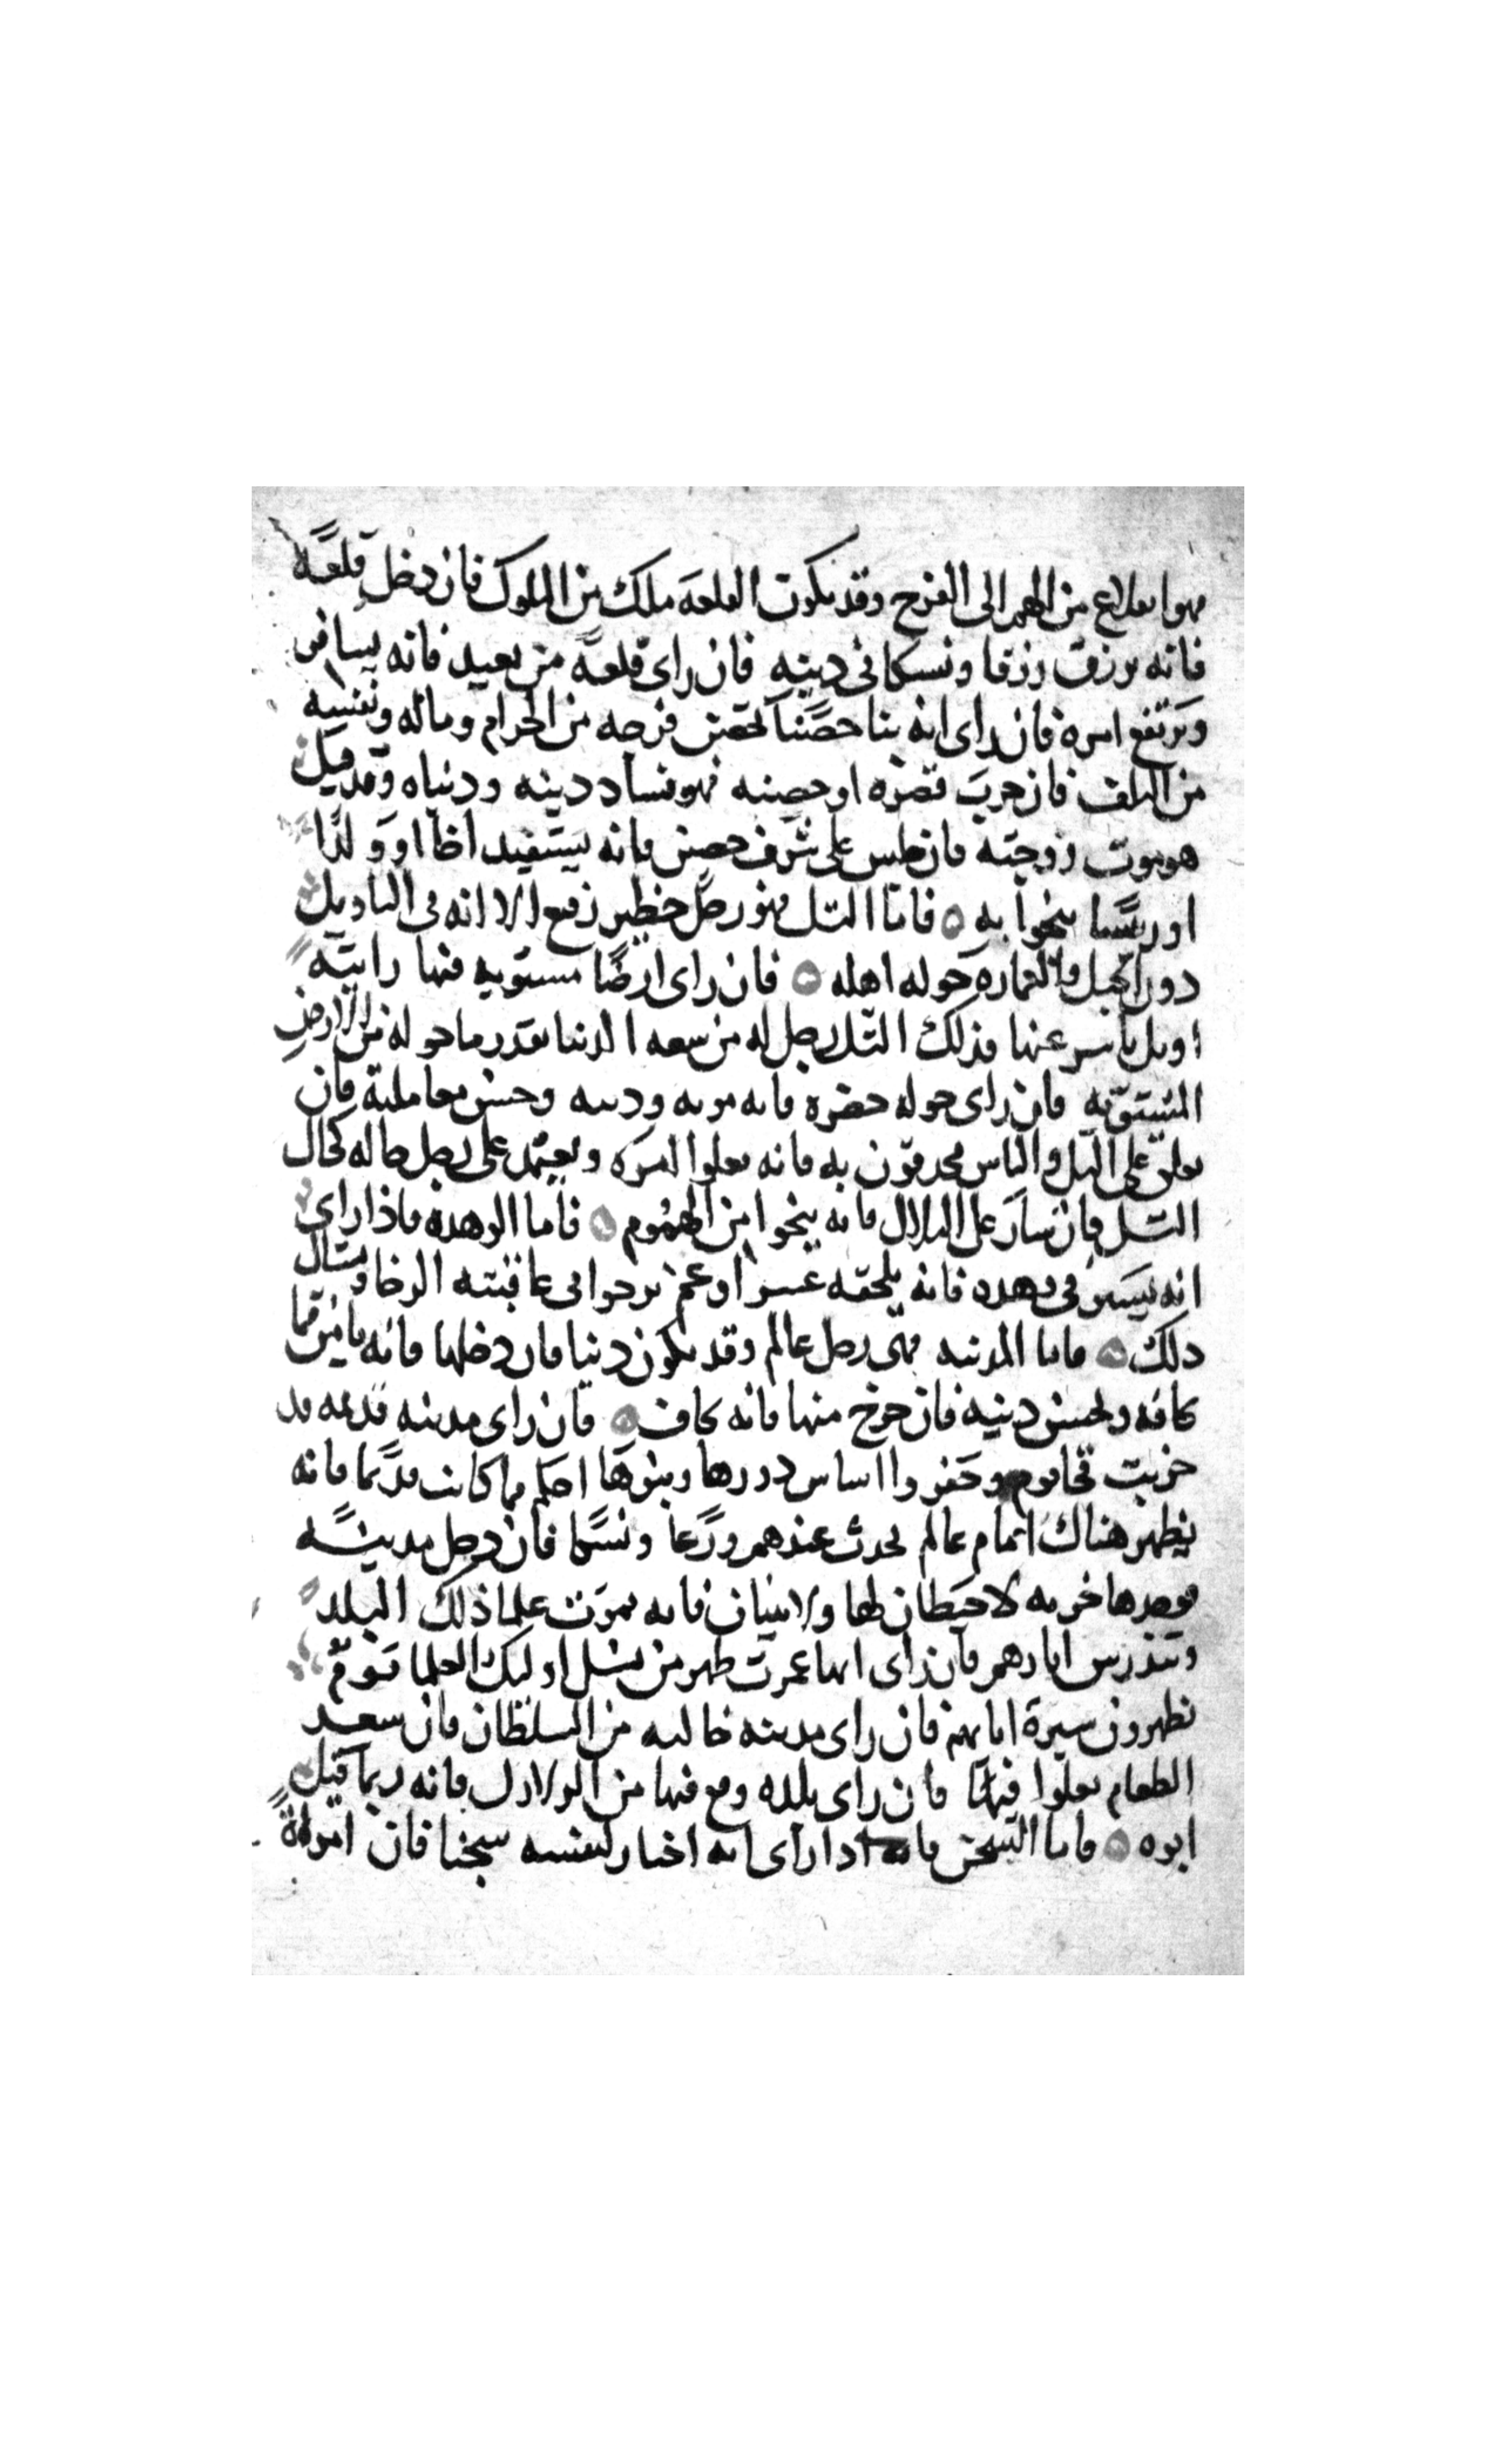 فهو انقلاع من الهم الى الفرح وقد يكون القلعة ملك من الملوك فان دخل قلعة
فانه يرزق رزقا ونسكا في دينه فان راى قلعة من بعيد فانه يسافر
ويرتفع امره فان راى انه بنا حصنا تحصن فرجه من الحرام وماله ونفسه
من التلف فان خرب قصره او حصنه فهو فساد دينه ودنياه وقد قيل
هو موت زوجته فان جلس على شرف حصن فانه يستفيد اخا او ولدا
او رئيسا ينجوا به ه فاما التل فهو رجل خطير رفيع الا انه في التاويل
دون الجبل والعمارة حوله اهله ه فان راى ارضا مستوية فيها رابية
او تل ناشر عنها فذلك التل رجل له من سعة الدنيا بقدر ما حوله من الارض
المستوية فان راى حوله خضرة فانه دينه وحسن معاملته فان
تعلق على التل والناس محدقون به فانه يعلوا امره ويعتمد على رجل حاله كحال
التل فان سار على التلال فانه ينجوا من الهموم ه فاما الوهدة فاذا راى
انه يسير في وهدة فانه يلحقه عسر او غم يرجوا في عاقبته الرخا ومثال
ذلك ه فاما المدينة فهي رجل عالم وقد يكون دنيا فان دخلها فانه يامن مما
يخافه ويحسن دينه فان خرج منها فانه يخاف ه فان راى مدينة قديمة قد
خربت فجا قوم وحفروا اساس دورها وبنوها احكم مما كانت قديما فانه
يظهر هناك امام عالم يحدث عندهم ورعا ونسكا فان دخل مدينة
فوجدها خربة لا حيطان لها ولا بنيان فانه يموت علما ذلك البلد
وتندرس اثارهم فان راى انها عمرت ظهر من نسل اوليك العلما قوم
يظهرون سيرة ابايهم فان راى مدينة خالية من السلطان فان سعر
الطعام يعلوا فيها فان راى بلده وقع فيها من الزلازل فانه ربما قتل
ابوه ه فاما السجن فانه اذا راى انه اختار لنفسه سجنا فان امراة